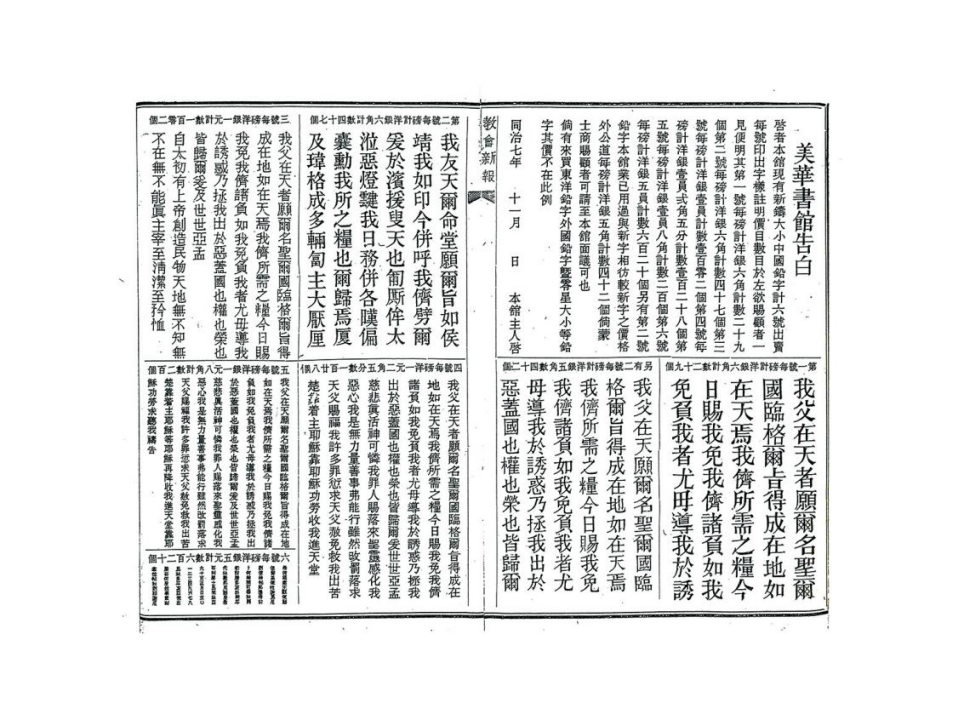 美華書館告白
啓者本館現有新鑄大小中國鉛字計六號出賣
每號印出字樣註明價目數目於左欲賜顧者一
見便明其第一號每磅計洋銀六角計數二十九
個第二號每磅計洋銀六角計數四十七個第三
號每磅計洋銀壹員計數壹百零二個第四號每
磅計洋銀壹員弍角五分計數壹百二十八個第
五號每磅計洋銀壹員八角計數二百個第六號
每磅計洋銀五員計數六百二十個另有第二號
鉛字本館業已用過與新字相彷較新字之價格
外公道每磅計洋銀五角計數四十二個倘蒙
士商賜顧者可請至本館面議可也
倘有來買東洋鉛字外國鉛字暨零星大小等鉛
字其價不在此例
同治七年 十一月 日 本館主人啓
第一號每磅計洋銀六角計數二十九個
我父在天者願爾名聖爾
國臨格爾旨得成在地如
在天焉我儕所需之糧今
日賜我免我儕諸負如我
免負我者尤毋導我於誘
另有二號每磅計洋銀五角計數四十二個
我父在天願爾名聖爾國臨
格爾旨得成在地如在天焉
我儕所需之糧今日賜我免
我儕諸負如我免負我者尤
毋導我於誘惑乃拯我出於
惡蓋國也權也榮也皆歸爾
教會新報
第二號每磅洋銀六角計數四十七個
我友天爾命堂願爾旨如侯
靖我如印今併呼我儕劈爾
爰於濱援叟天也匍厮侔太
涖惡燈讎我日務併各嘆偏
囊勳我所之糧也爾歸焉厦
及瑋格成多輛匐主大厭厘
三號每磅洋銀一元計數一百零二個
我父在天者願爾名聖爾國臨格爾旨得
成在地如在天焉我儕所需之糧今日賜
我免我儕諸負如我免負我者尤毋導我
於誘惑乃拯我出於惡蓋國也權也榮也
皆歸爾爰及世世亞孟
自太初有上帝創造民物天地無不知無
不在無不能眞主宰至淸潔至矜恤
四號每磅洋一元二角五分數一百廿八個
我父在天者願爾名聖爾國臨格爾旨得成在
地如在天焉我儕所需之糧今日賜我免我儕
諸負如我免負我者尤毋導我於誘惑乃極我
出於惡蓋國也權也榮也皆歸爾爰世世亞孟
慈悲眞活神可憐我罪人賜落來聖靈感化我
惡心我是無力量善事弗能行雖然攺罰落求
天父賜福我許多罪愆求天父赦免救我出苦
楚靠着主耶穌靠耶穌功勞收我進天堂
五號每磅洋銀一元八角計數二百個
我父在天願爾名聖爾國臨格爾旨得成在地
如在天焉我儕所需之糧今日賜我免我儕諸
負如我免負我者尤毋導我於誘惑乃拯我出
於惡蓋國也權也榮也皆歸爾爰及世世亞孟
慈悲眞活神可憐我罪人賜落來聖靈感化我
惡心我是無力量善事弗能行雖然改罰落求
天父賜福我許多罪愆求天父赦免救我出苦
楚靠着主耶穌等耶穌再降收我進天堂靠耶
穌功勞求聽我禱告
六號每磅洋銀五元計數六百二十個